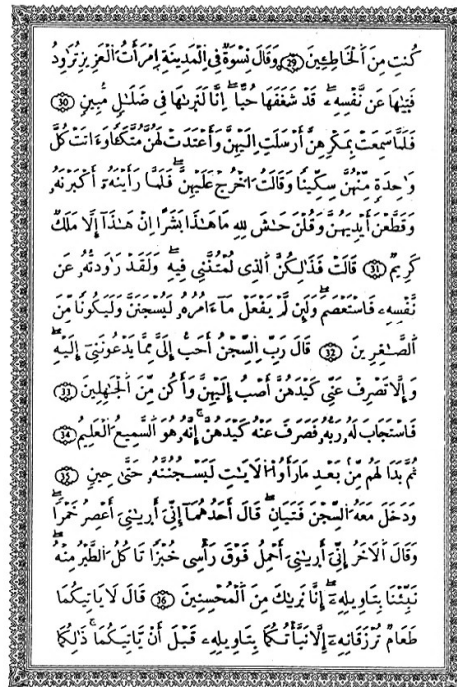 كُنتِ مِنَ اَلْخَاطِئِينَ 29 وَقَالَ نِسْوَةٌ فِى اِلْمَدِينَةِ اِمْرَأَتُ اُلْعَزِيزِ تُرَٰوِدُ
فَتَيٰهَا عَن نَّفْسِهِۦ قَدْ شَغَفَهَا حُبًّا اِنَّا لَنَرَيٰهَا فِى ضَلَٰلٍ مُّبِينٍ 30
فَلَمَّا سَمِعَتْ بِمَكْرِهِنَّ أَرْسَلَتِ اِلَيْهِنَّ وَأَعْتَدَتْ لَهُنَّ مُتَّكَـًٔا وَءَاتَتْ كُلَّ
وَٰحِدَةٍ مِّنْهُنَّ سِكِّينًا وَقَالَتُ اُخْرُجْ عَلَيْهِنَّ فَلَمَّا رَأَيْنَهُۥ أَكْبَرْنَهُۥ
وَقَطَّعْنَ أَيْدِيَهُنَّ وَقُلْنَ حَٰشَ لِلهِ مَا هَٰذَا بَشَرًا اِنْ هَٰذَآ إِلَّا مَلَكٌ
كَرِيمٌ 31 قَالَتْ فَذَٰلِكُنَّ اَلَّذِى لُمْتُنَّنِى فِيهِ وَلَقَدْ رَٰوَدتُّهُۥ عَن
نَّفْسِهِۦ فَاسْتَعْصَمَ وَلَئِن لَّمْ يَفْعَلْ مَآ ءَامُرُهُۥ لَيُسْجَنَنَّ وَلَيَكُونًا مِّنَ
اَلصَّٰغِرِينَ 32 قَالَ رَبِّ اِلسِّجْنُ أَحَبُّ إِلَىَّ مِمَّا يَدْعُونَنِىٓ إِلَيْهِ
وَإِلَّا تَصْرِفْ عَنِّى كَيْدَهُنَّ أَصْبُ إِلَيْهِنَّ وَأَكُن مِّنَ اَلْجَٰهِلِينَ 33
فَاسْتَجَابَ لَهُۥ رَبُّهُۥ فَصَرَفَ عَنْهُ كَيْدَهُنَّ إِنَّهُۥ هُوَ اَلسَّمِيعُ اُلْعَلِيمُ 34
ثُمَّ بَدَا لَهُم مِّنۢ بَعْدِ مَا رَأَوُاْ اُلْأَيَٰتِ لَيَسْجُنُنَّهُۥ حَتَّىٰ حِينٍ 35
وَدَخَلَ مَعَهُ اُلسِّجْنَ فَتَيَٰنِ قَالَ أَحَدُهُمَآ إِنِّىَ أَرَيٰنِىَ أَعْصِرُ خَمْرًا
وَقَالَ اَلْأَخَرُ إِنِّىَ أَرَيٰنِىَ أَحْمِلُ فَوْقَ رَأْسِى خُبْزًا تَاكُلُ اُلطَّيْرُ مِنْهُ
نَبِّئْنَا بِتَاوِيلِهِۦٓ إِنَّا نَرَيٰكَ مِنَ اَلْمُحْسِنِينَ 36 قَالَ لَا يَاتِيكُمَا
طَعَامٌ تُرْزَقَانِهِۦٓ إِلَّا نَبَّأْتُكُمَا بِتَاوِيلِهِۦ قَبْلَ أَنْ يَّاتِيَكُمَا ذَٰلِكُمَا